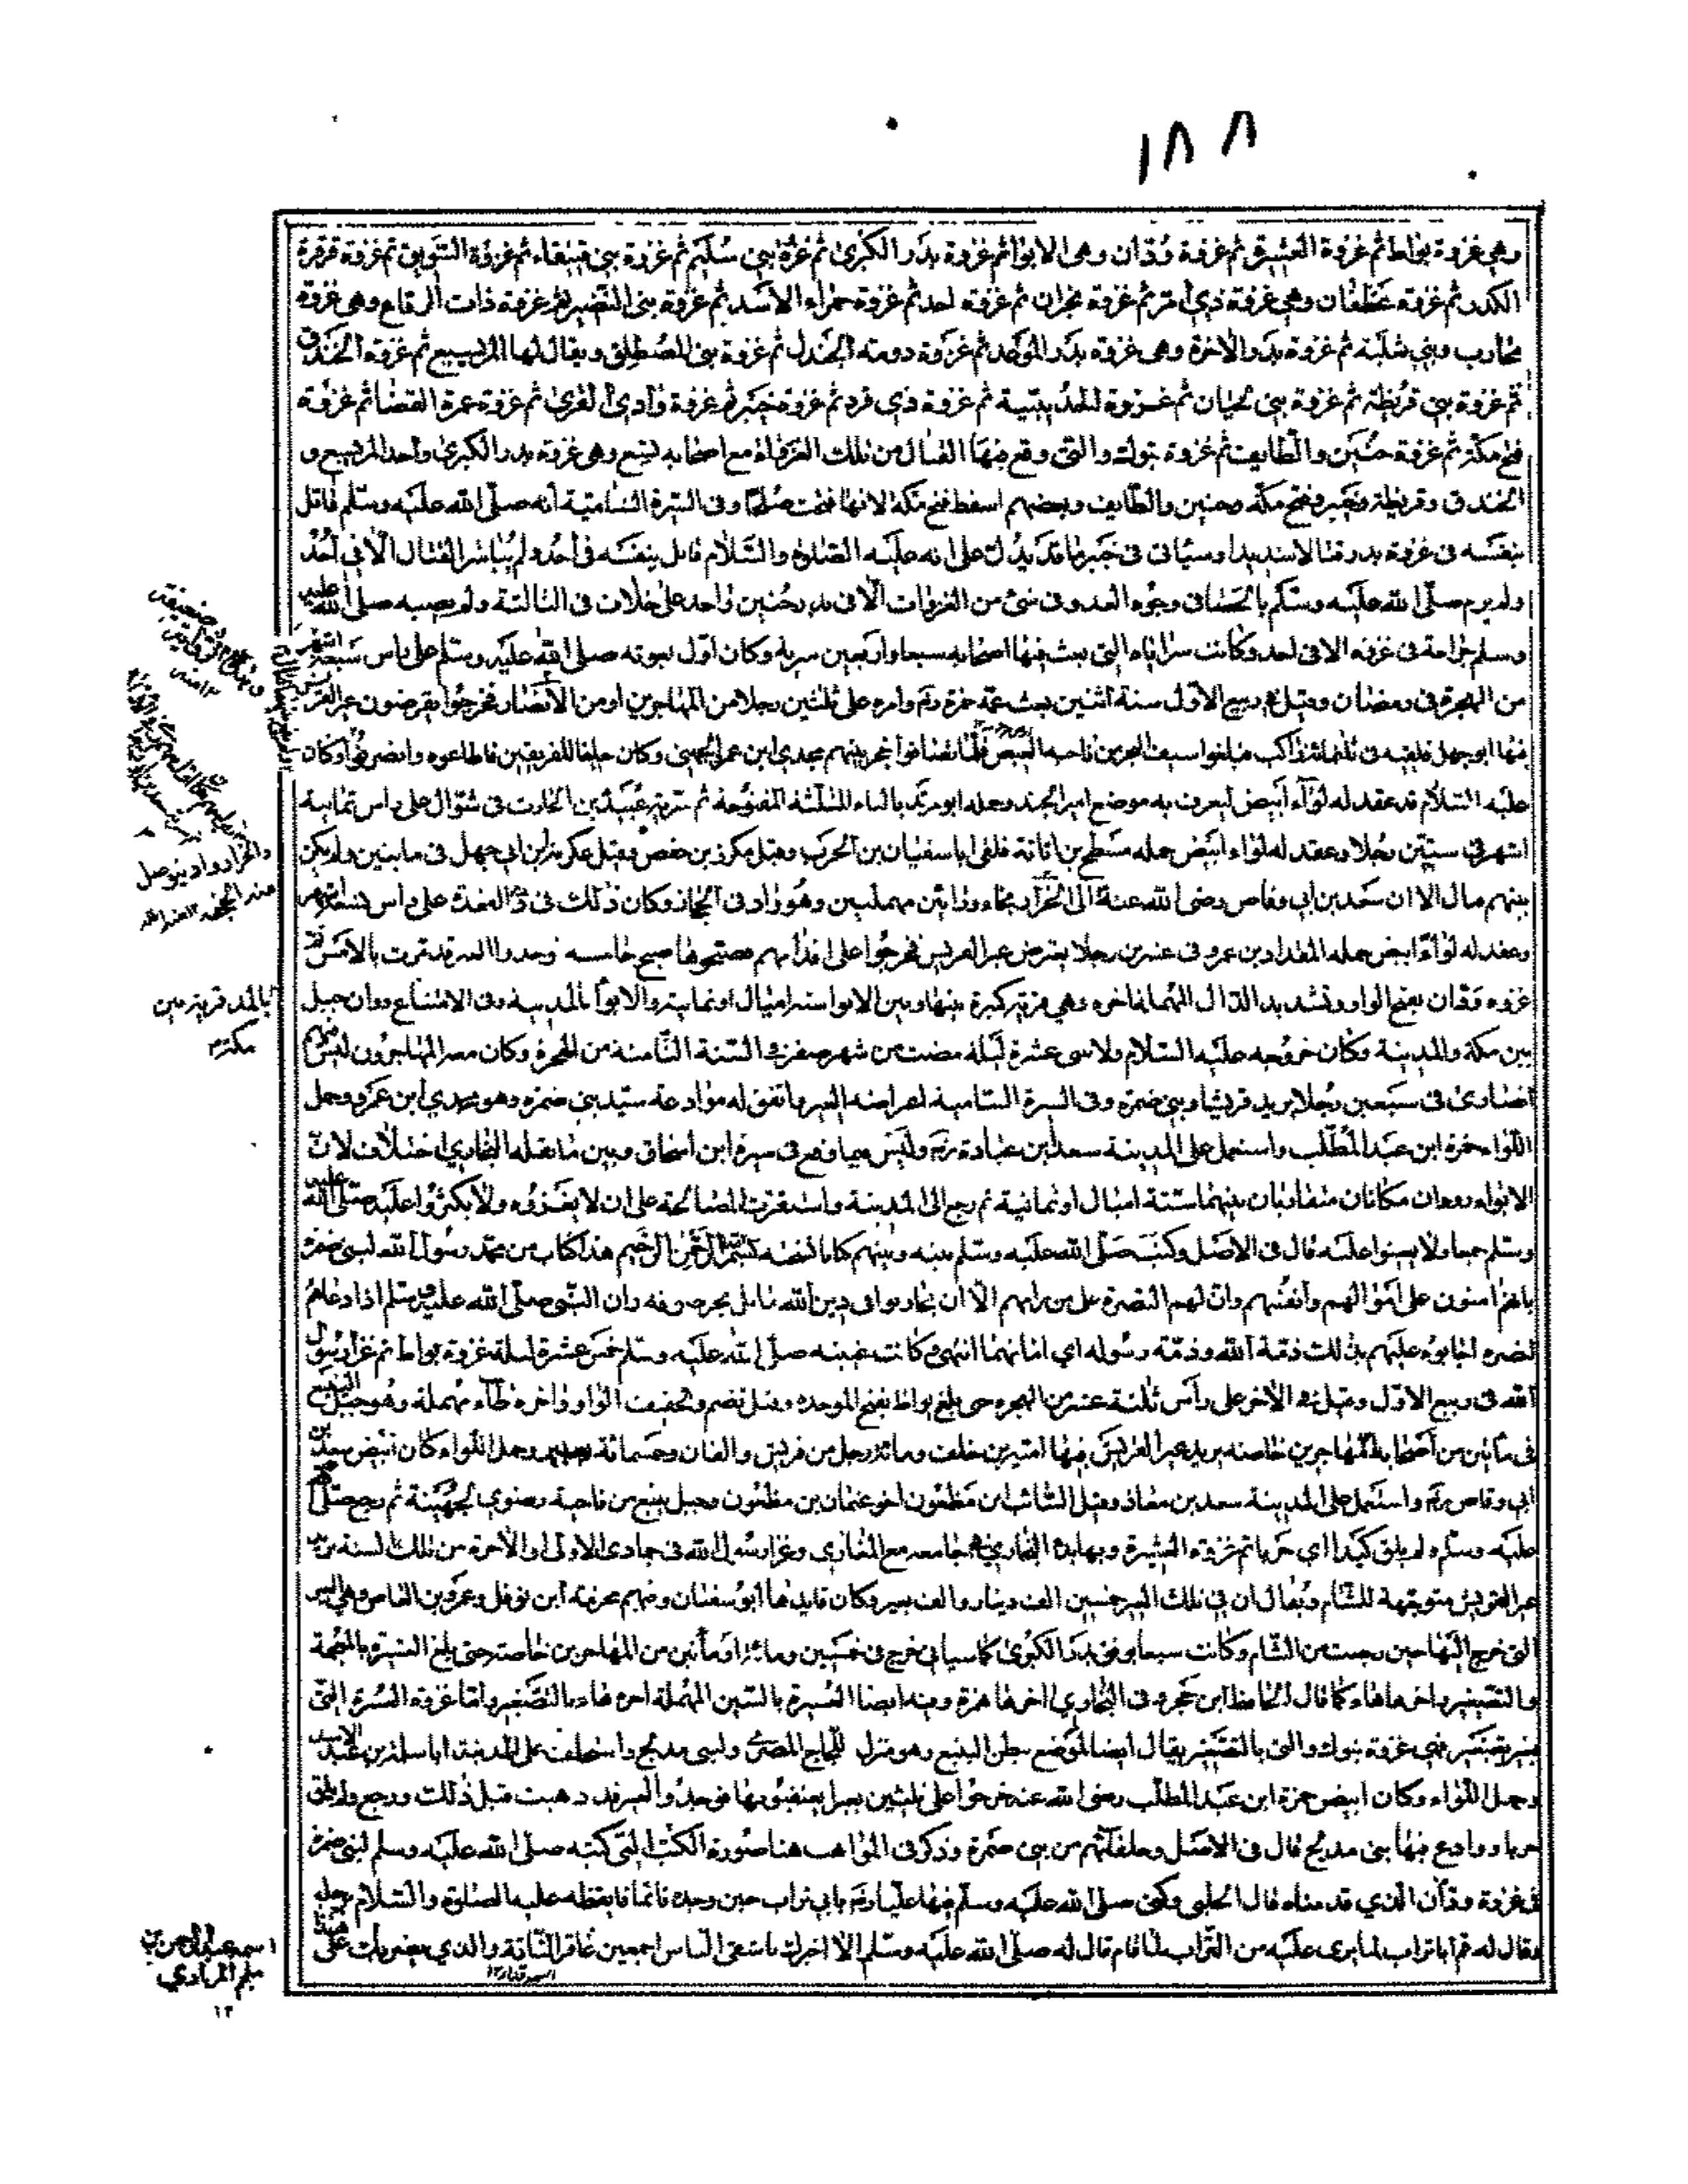 ١٨٨
وهي غزوة بواط ثم غزوة العشيرة ثم غزوة ودان وهى الابوا ثم غزوة بدر الكبرى ثم غزوة بني سليم ثم غزوة بني قينقاء ثم غزوة السويق ثم غزوة قرقرة
الكدر ثم غزوة غطفان وهي غزوة ذي امر ثم غزوة نجران ثم غزوة احد ثم غزوة حمراء الاسد ثم غزوة بنى النضير ثم غزوة ذات الرقاع وهى غزوة
محارب وبني ثعلبة ثم غزوة بدر الاخرة وهى غزوة بدر الموعد ثم غزوة دومة الجندل ثم غزوة بنى المصطلق ويقال لها المريسيع ثم غزوة الخندق
ثم غزوة بني قريظة ثم غزوة بنى لحيان ثم غزوة الحديبية ثم غزوة ذى قرد ثم غزوة خيبر ثم غزوة وادى القرى ثم غزوة عمرة القضا ثم غزوة
فتح مكة ثم غزوة حنين والطايف ثم غزوة تبوك والتى وقع فيها القتال من تلك الغزوات مع اصحابه تسع وهى غزوة بدر الكبرى واحد والمريسيع و
الخندق وقريظة وخيبر وفتح مكة وحنين والطايف وبعضهم اسقط فتح مكة لانها فتحت صلحا وفى السيرة الشامية انه صلى الله عليه وسلم قاتل
بنفسه فى غزوة بدر قتالا شديدا وسياتى فى خيبر ما قد يدل على انه عليه الصلوة والسلام قاتل بنفسه فى أحد ولم يباشر القتال الا فى أحد
ولم يرم صلى الله عليه وسلم بالحصا فى وجوه العدو فى شئ من الغزوات الا فى بدر وحنين واحد على خلاف فى الثالثة ولم يصبه صلى الله عليه
وسلم جراحة فى غزوة الا فى احد وكانت سراياه التى بعث فيها اصحابه سبعا واربعين سرية وكان اول بعوثه صلى الله عليه وسلم على راس سبعة اشهر
من الهجرة فى رمضان وقيل فى ربيع الاول سنة اثنين بعث عمه حمزة رضه وامره على ثلثين رجلا من المهاجرين او من الأنصار فخرجوا يعرضون عير القريش
فيها ابو جهل فلقيه فى ثلثمائة راكب فبلغوا سيف البحر من ناحية العيص فلما تصافوا حجز بينهم مجدي ابن عمر الجهنى وكان حليفا للفريقين فاطاعوه وانصرفوا وكان
عليه السلام قد عقد له لواء أبيض ليعرف به موضع امير الجند وحمله ابو مرثد بالثاء المثلثة المفتوحة ثم سرية عبيدة بن الحارث فى شوال على راس ثمانية
اشهر في ستين رجلا وعقد له لواء ابيض حمله مسطح بن اثاثة فلقى اباسفيان بن الحرب وقيل مكرز بن حفص وقيل عكرمة ابن ابى جهل فى مايتين ولم يكن
بينهم قتال الا ان سعد بن ابى وقاص رضى الله عنه الى الخرار بخاء ورائين مهملتين وهو واد فى الحجاز وكان ذلك فى ذى القعدة على راس تسعة اشهر
وعقد له لواء ابيض حمله المقداد بن عمرو فى عشرين رجلا يعترض عير القريش فخرجوا على اقدامهم فصبحوها صبح خامسه فوجدوا العير قد مرت بالامس
غزوه ودان بفتح الواو وتشديد الدال المهملة اخره وهي قرية كبيرة بينها وبين الابوا ستة اميال او ثمانية والابوا بالمدينة وفى الامتاع ودان جبل
بين مكة والمدينة وكان خروجه عليه السلام ولاثنى عشرة ليلة مضت من شهر صفر فى السنة الثامنة من الهجرة وكان معه المهاجرون ليس فيهم
انصارى فى سبعين رجلا يريد قريشا وبنى ضمرة وفى السيرة الشامية لاعراضه العير فاتفق له موادعة سيد بنى ضمرة وهو مجدي ابن عمرو وحمل
اللواء حمزة ابن عبد المطلب واستعمل على المدينة سعد ابن عبادة رضه وليس بين ما وقع فى سيرة ابن اسحاق وبين ما نقله البخارى اختلاف لان
الابواء وودان مكانان متقاربان بينهما ستة اميال او ثمانية ثم رجع الى المدينة واستقرت المصالحة على ان لا يغزوه ولا يكثروا عليه صلى الله عليه
وسلم جمعا ولا يعينوا عليه قال فى الاصل وكتب صلى الله عليه وسلم بينه وبينهم كتابا نصه بسم الله الرحمن الرحيم هذا كتاب من محمد رسول الله لبنى ضمرة
بانهم امنون على اموالهم وانفسهم وان لهم النصرة على من رامهم الا ان يحاربوا فى دين الله ما بل بحر صوفه وان النبى صلى الله عليه وسلم اذا دعاهم
لنصره اجابوه عليهم بذلك ذمة الله وذمة رسوله اى امانهما انتهى وكانت غيبته صلى الله عليه وسلم خمس عشرة ليلة غزوة بواط ثم غزا رسول
الله فى ربيع الاول وقيل فى الاخر على رأس ثلثة عشر من الهجره حتى بلغ بواط بفتح الموحده وقيل تضم وتخفيف الواو واخره طاء مهملة وهو جبل
فى مأتين من اصحابه المهاجرين خاصته يريد عير القريش فيها امية بن خلف ومائة رجل من قريش والفان وخمسمائة بعير وحمل اللواء كان ابيض سعد بن
ابى وقاص رضه واستعمل على المدينة سعد بن معاذ وقيل السائب ابن مظعون اخو عثمان بن مظعون وجبل ينبع من ناحية رضوى لجهينة ثم رجع صلى
عليه وسلم ولم يلق كيدا اى حربا ثم غزوة العشيرة وبها بدء البخارى فى جامعه مع المغازى وغزا رسول الله فى جمادى الاولى او الاخرة من تلك السنة يريد
عير القريش متوجهة للشام ويقال ان في تلك العير خمسين الف دينار والف بعير وكان قايدها أبو سفيان وفيهم مخرمة ابن نوفل وعمرو بن العاص وهى العير
التى خرج اليها حين رجعت من الشام وكانت سببا لوقوع بدر الكبرى كما سياتى خرج فى خمسين ومائة او مأتين من المهاجرين خاصة حتى بلغ العشيرة بالمعجمة
والتصغير واخرها هاء كما قال الحافظ ابن حجر وفى البخاري اخرها همزة وفيه ايضا العسيرة بالسين المهملة اخره هاء بالتصغير واما غزوة العسرة التى
بغير تصغير فهى غزوة تبوك والتى بالتصغير يقال ايضا لموضع ببطن الينبع وهو منزل للحاج المصرى ولبنى مدلج واستخلف على المدينة اباسلمة بن عبد الاسد
وحمل اللواء وكان ابيض حمزة ابن عبد المطلب رضى الله عنه خرجوا على ثلثين بعيرا يعتقبونها فوجدوا العير قد ذهبت قبل ذلك ورجع ولم يلق
حربا ووادع فيها بنى مدلج قال فى الاصل وحلفائهم من بنى ضمرة وذكر فى المواهب هنا صورة الكتب التى كتبه صلى الله عليه وسلم لبنى ضمرة
فى غزوة ودان الذي قدمناه قال الحلبى وكنى صلى الله عليه وسلم فيها عليا رضه بابى تراب حين وجده نائما فايقظه عليه الصلوة والسلام برجله
وقال له قم اباتراب لما يرى عليه من التراب فلما قام قال له صلى الله عليه وسلم الا اخبرك باشقى الناس اجمعين عاقر الناقة والذى يضربك على
اسمه قدار ١٢
والخرار واد يتوصل
عند الجحفة
بالمد قرية من
مكة ١٢
اسمه عبد الرحمن بن
ملجم المرادي
١٢